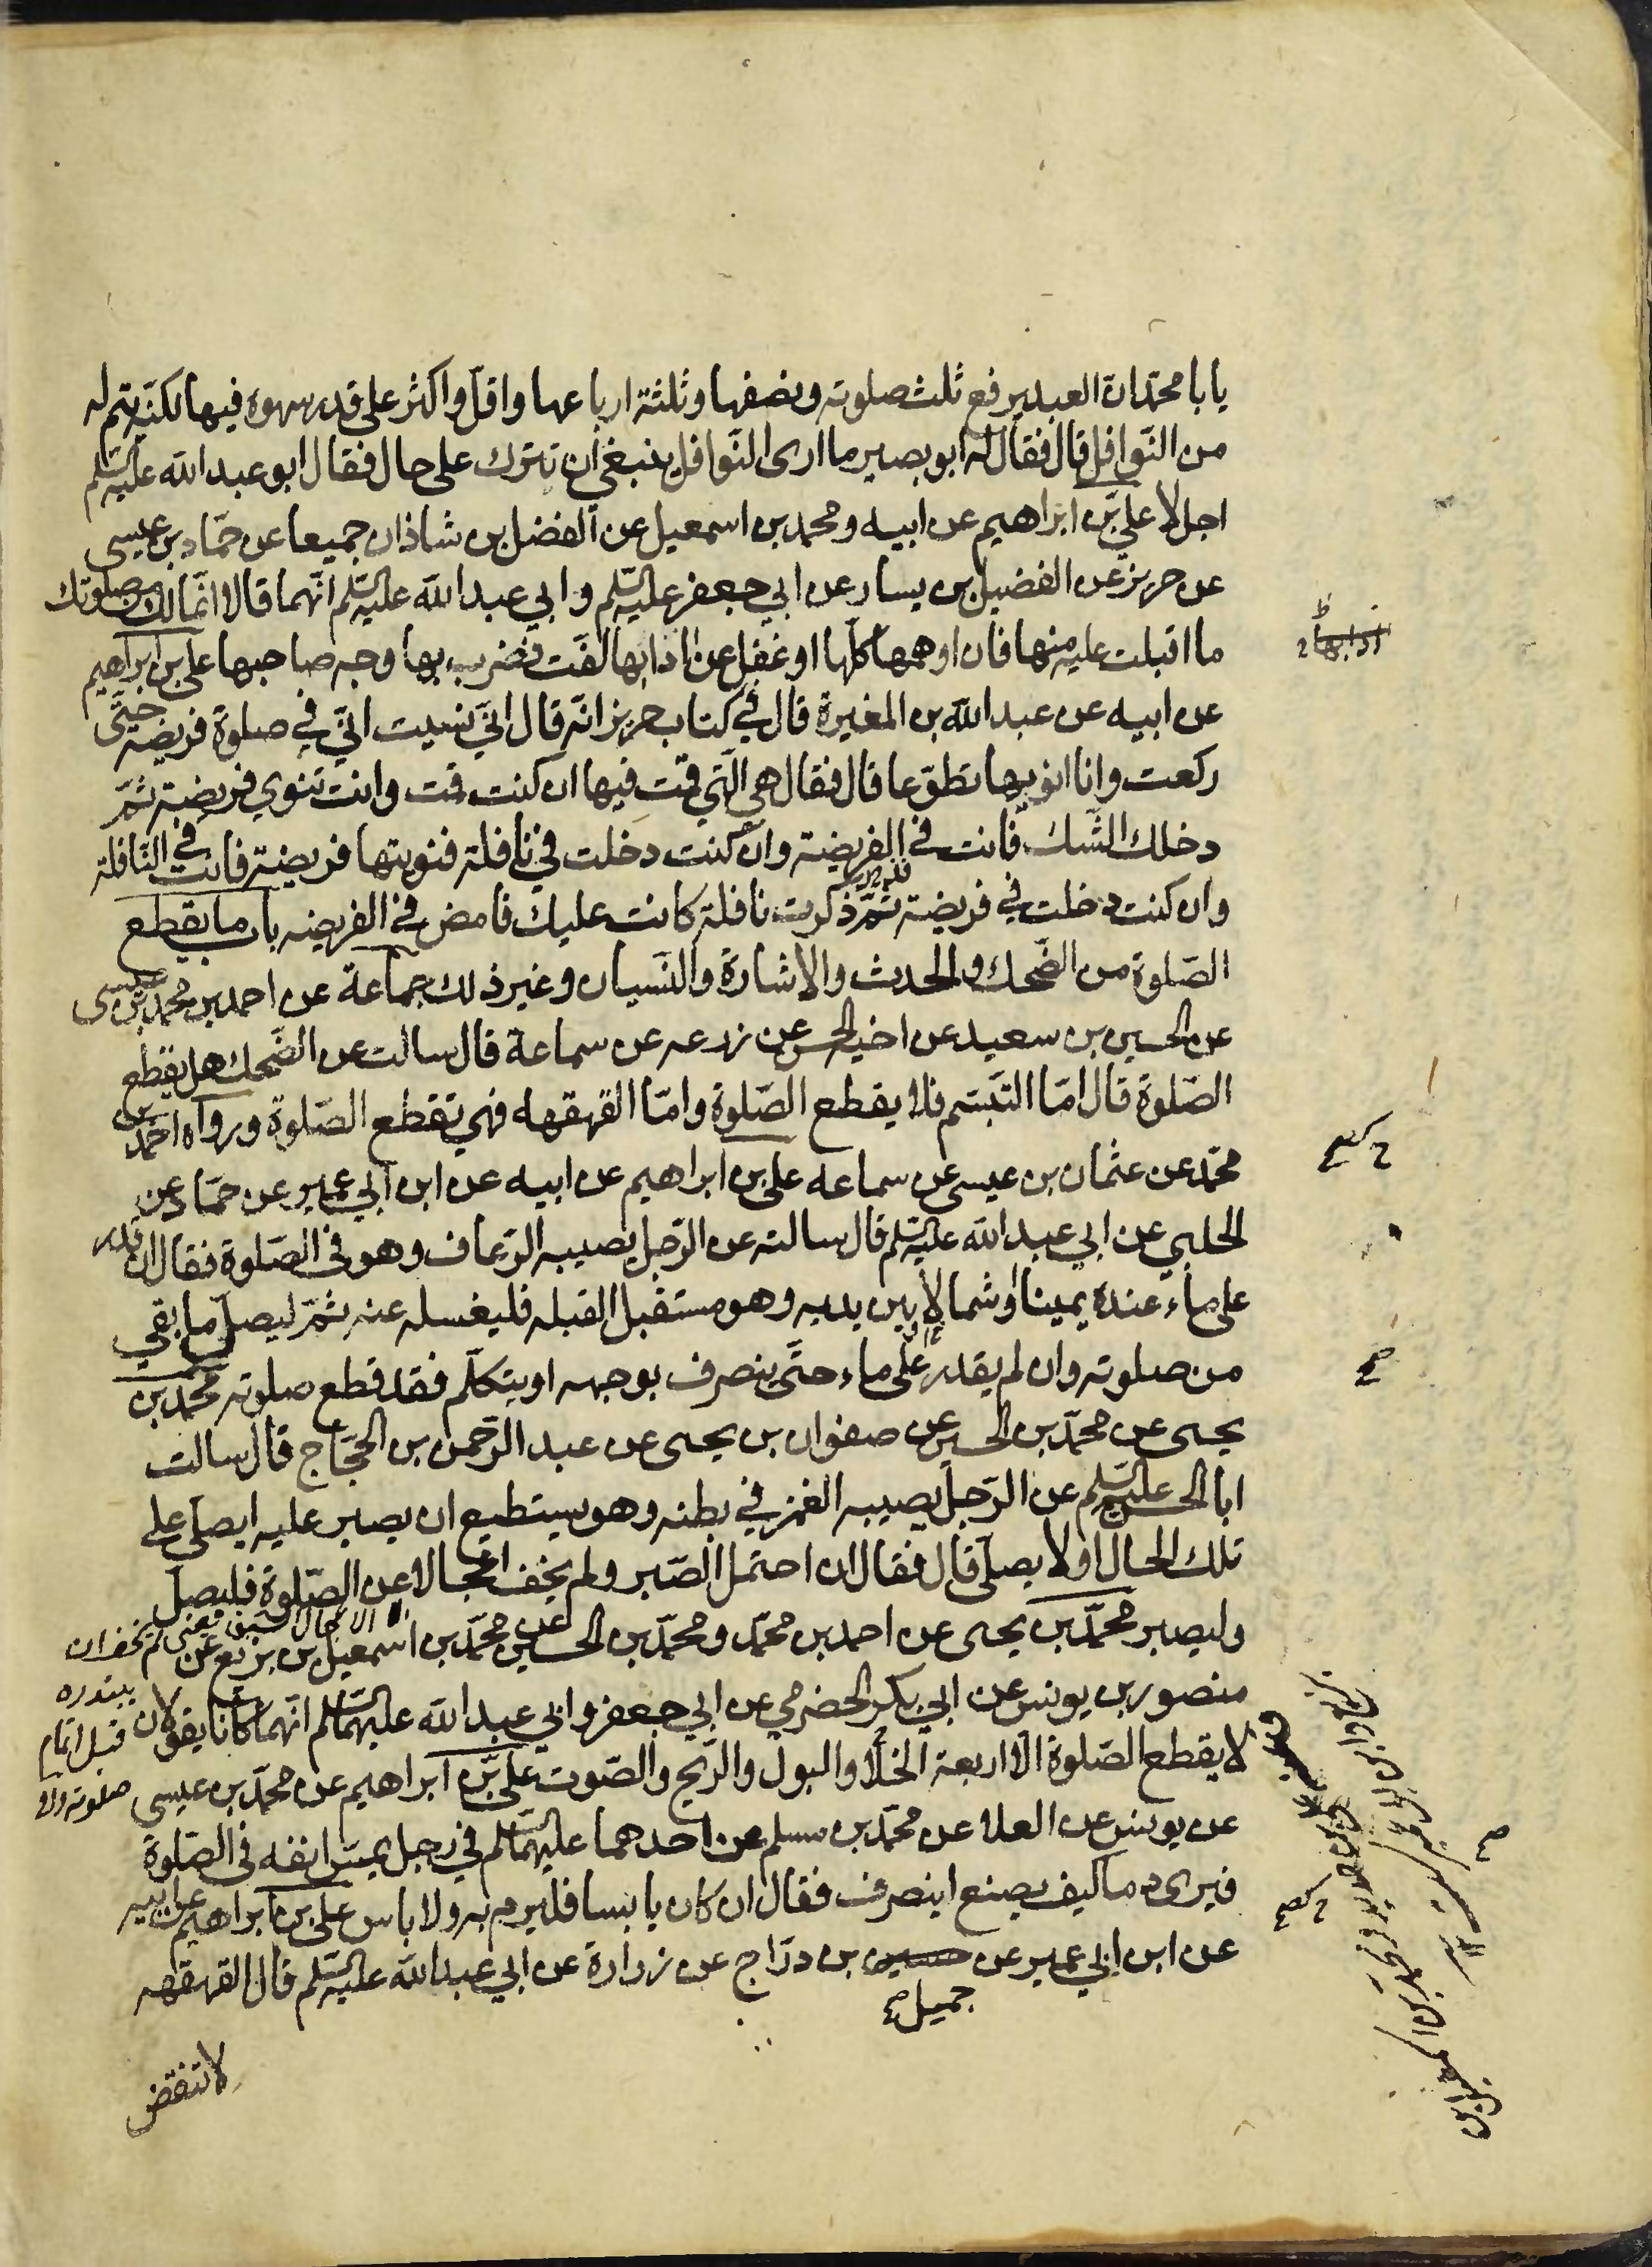 يا با محمد ان العبد يرفع ثلث صلوته ونصفها وثلثة ارباعها واقل واكثر على قدر سهوه فيها لكنه يتم له
من النوافل قال فقال له ابو بصير ما ارى النوافل ينبغي ان تترك على حال فقال ابو عبد الله عليه السلم
اجل لا علي بن ابراهيم عن ابيه ومحمد بن اسمعيل عن الفضل بن شاذان جميعا عن حماد بن عيسى
عن حريز عن الفضيل بن يسار عن ابي جعفر عليه السلم وابي عبد الله عليه السلم انهما قالا انما لك من صلوتك
ما اقبلت عليه منها فان اوهمها كلها او غفل عن ادابها لفت فضرب بها وجه صاحبها علي بن ابراهيم
عن ابيه عن عبد الله بن المغيرة قال في كتاب حريز انه قال اني نسيت اني في صلوة فريضه حتى
ركعت وانا انويها تطوعا قال فقال هي التي قمت فيها ان كنت قمت وانت تنوي فريضة ثم
دخلك الشك فانت في الفريضة وان كنت دخلت في نافلة فنويتها فريضة فانت في النافلة
وان كنت دخلت في فريضة ثم ذكرت نافلة كانت عليك فامض في الفريضه باب ما يقطع
الصلوة من الضحك والحدث والاشارة والنسيان وغير ذلك جماعة عن احمد بن محمد بن عيسى
عن الحسين بن سعيد عن اخيه الحسن عن زرعه عن سماعة قال سالت عن الضحك هل يقطع
الصلوة قال اما التبسم فلا يقطع الصلوة واما القهقهه فهي تقطع الصلوة ورواه احمد بن
محمد عن عثمان بن عيسى عن سماعه علي بن ابراهيم عن ابيه عن ابن ابي عمير عن حماد عن
الحلبي عن ابي عبد الله عليه السلم قال سالته عن الرجل يصيبه الرعاف وهو في الصلوة فقال ان قدر
على ماء عنده يمينا او شمالا بين يديه وهو مستقبل القبله فليغسله عنه ثم ليصل ما بقي
من صلوته وان لم يقدر على ماء حتى ينصرف بوجهه او يتكلم فقد قطع صلوته محمد بن
يحيى عن محمد بن الحسين عن صفوان بن يحيى عن عبد الرحمن بن الحجاج قال سالت
ابا الحسن عليه السلم عن الرجل يصيبه الغمز في بطنه وهو يستطيع ان يصبر عليه ايصلى على
تلك الحال او لا يصلى قال فقال ان احتمل الصبر ولم يخف اعجالا عن الصلوة فليصل
وليصبر محمد بن يحيى عن احمد بن محمد ومحمد بن الحسين عن محمد بن اسمعيل بن بزيع عن
منصور بن يونس عن ابي بكر الحضرمي عن ابي جعفر وابي عبد الله عليهما السلم انهما كانا يقولان
لا يقطع الصلوة الا اربعة الخلا والبول والريح والصوت علي بن ابراهيم عن محمد بن عيسى
عن يونس عن العلا عن محمد بن مسلم عن احدهما عليهما السلم في رجل يمس انفه في الصلوة
فيرى دما كيف يصنع اينصرف فقال ان كان يابسا فليرم به ولا باس علي بن ابراهيم عن ابيه
عن ابن ابي عمير عن حسين بن دراج عن زرارة عن ابي عبد الله عليه السلم قال القهقهه
جميل صح
لا تنقض
ادابها
الاعجال السبق يعنى لم يخف ان
يبتدره
قبل اتمام
صلوته